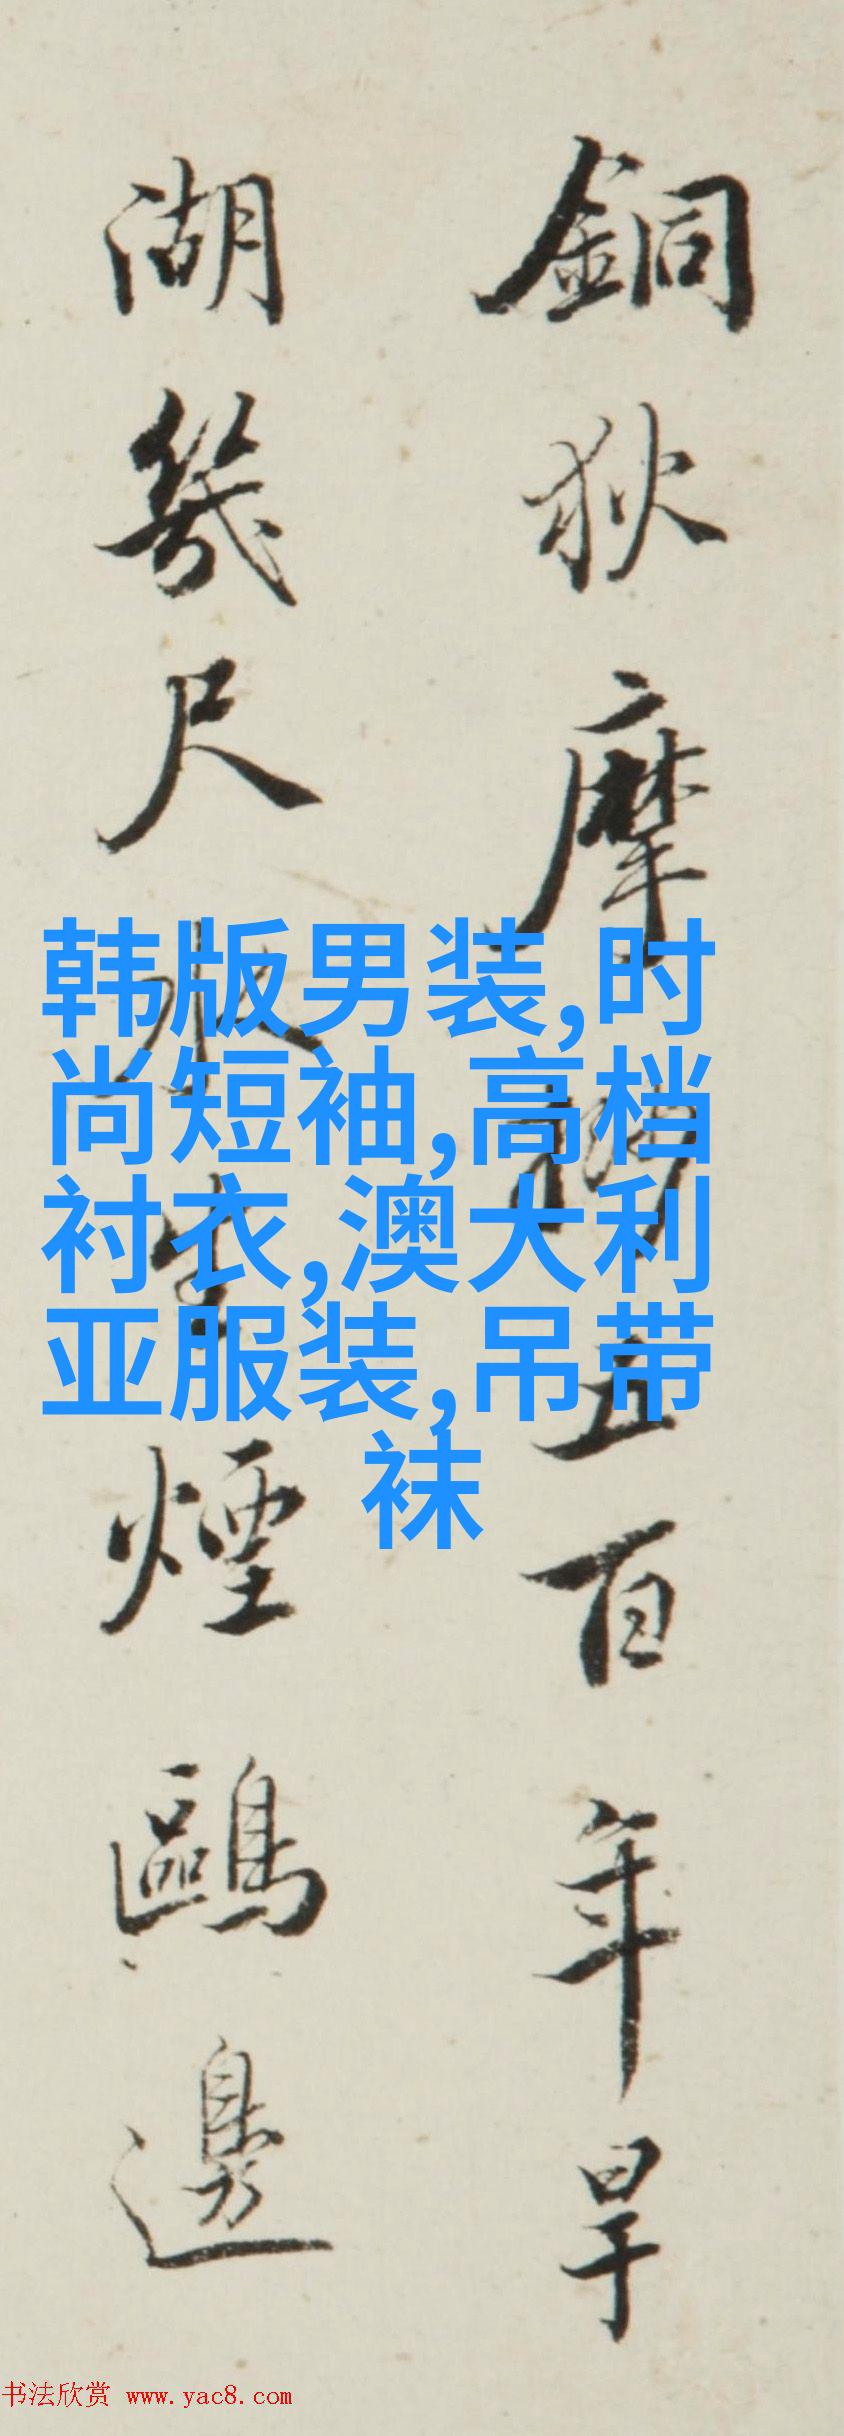 銅狄摩五百年旱
湖幾尺水生煙鷗邊
韩版男装,时
尚短袖,高档
衬衣,澳大利
亚服装,吊带
袜
书法欣赏 www.yac8.com